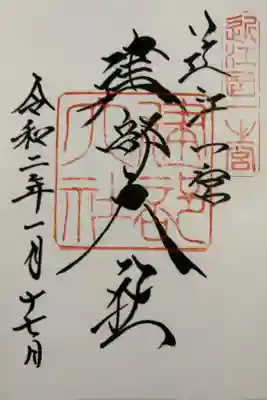 近江一宮
近江国一之宮
建部大社
建部大社
令和二年一月十七日